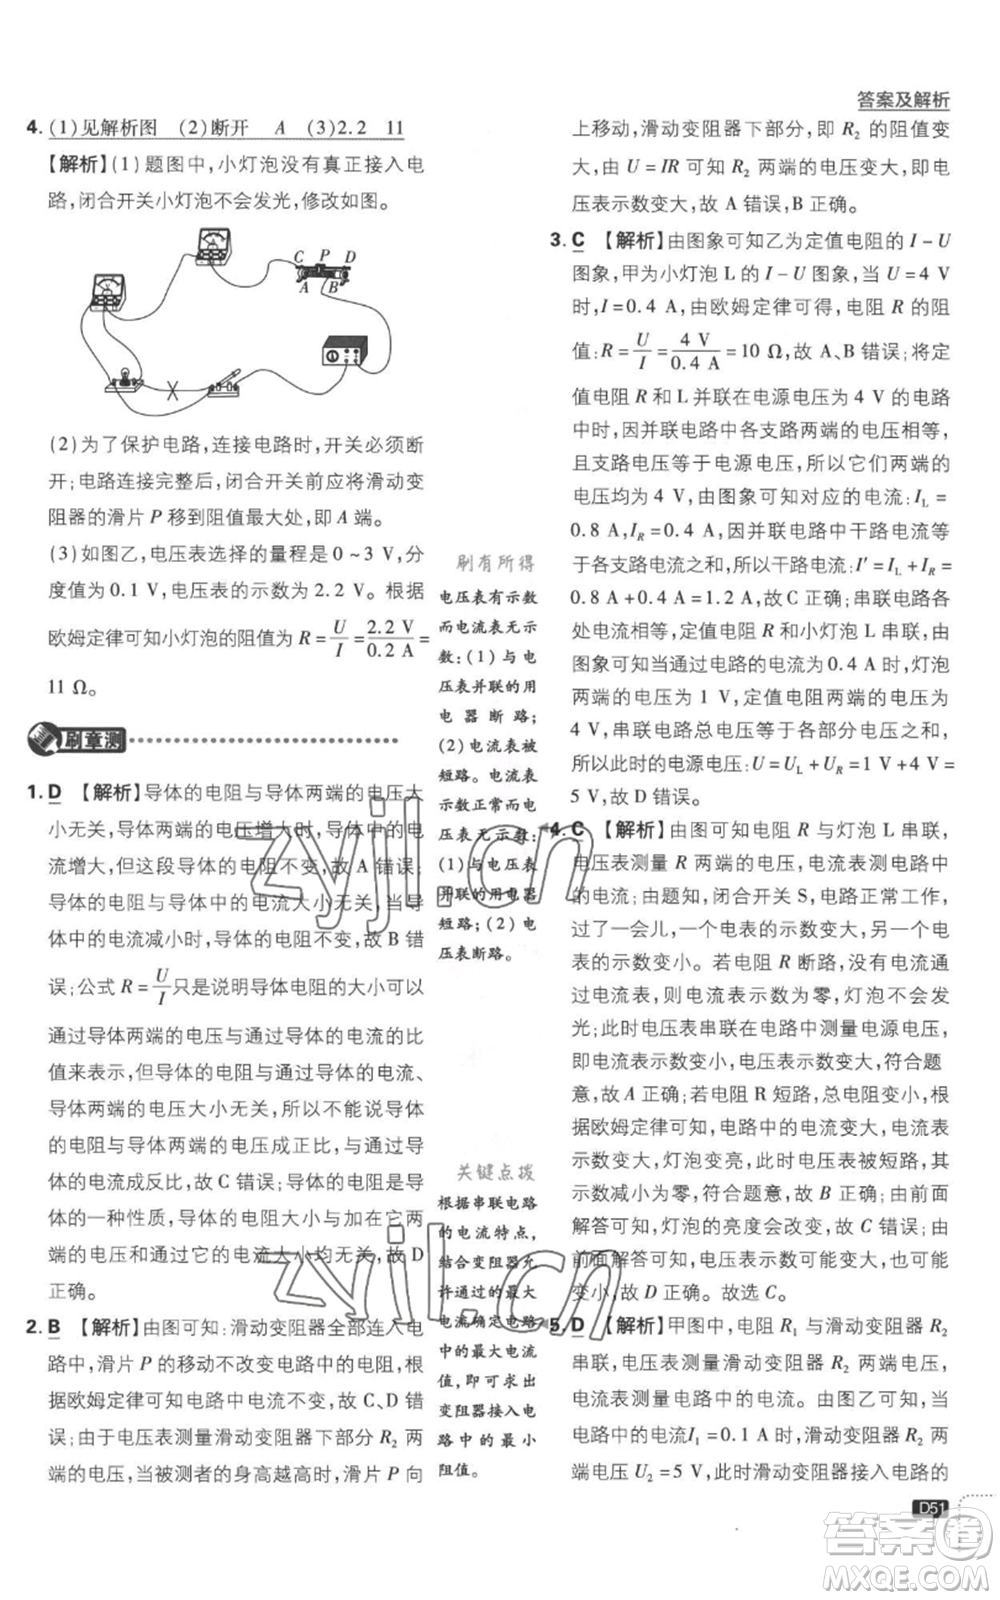 答案及解析
4. (1)见解析图 (2)断开 A (3)2.2 11
【解析】(1)题图中,小灯泡没有真正接入电
路,闭合开关小灯泡不会发光,修改如图。
C P D
A B
(2)为了保护电路,连接电路时,开关必须断
开;电路连接完整后,闭合开关前应将滑动变
阻器的滑片 P 移到阻值最大处,即 A 端。
(3)如图乙,电压表选择的量程是 0~3 V,分
度值为 0.1 V,电压表的示数为 2.2 V。根据
欧姆定律可知小灯泡的阻值为 R = U/I = 2.2 V/0.2 A =
11 Ω。
刷章测
1. D 【解析】导体的电阻与导体两端的电压大
小无关,导体两端的电压增大时,导体中的电
流增大,但这段导体的电阻不变,故 A 错误;
导体的电阻与导体中的电流大小无关,当导
体中的电流减小时,导体的电阻不变,故 B 错
误;公式 R = U/I 只是说明导体电阻的大小可以
通过导体两端的电压与通过导体的电流的比
值来表示,但导体的电阻与导体中的电流、
导体两端的电压大小无关,所以不能说导体
的电阻与导体两端的电压成正比,与导体中
的电流成反比,故 C 错误;导体的电阻是导
体的一种性质,导体的电阻大小与加在它两
端的电压和通过它的电流大小均无关,故 D
正确。
2. B 【解析】由图可知:滑动变阻器全部连入电
路中,滑片 P 的移动不改变电路中的电阻,根
据欧姆定律可知电路中电流不变,故 C、D 错
误;由于电压表测量滑动变阻器下部分 R₂ 两
端的电压,当被测者的身高越高时,滑片 P 向
刷有所得
电压表有示数
而电流表无示
数:(1)与电
压表并联的用
电器断路;
(2)电流表被
短路。电流表
示数正常而电
压表无示数:
(1)与电压表
并联的用电器
短路;(2)电
压表断路。
关键点拨
根据串联电路
的电流特点,
结合变阻器允
许通过的最大
电流确定电路
中的最大电流
值,即可求出
变阻器接入电
路中的最小
阻值。
上移动,滑动变阻器下部分,即 R₂ 的阻值变
大,由 U = IR 可知 R₂ 两端的电压变大,即电
压表示数变大,故 A 错误,B 正确。
3. C 【解析】由图象可知乙为定值电阻的 I-U
图象,甲为小灯泡 L 的 I-U 图象,当 U = 4 V
时,I = 0.4 A,由欧姆定律可得,电阻 R 的阻
值:R = U/I = 4 V/0.4 A = 10 Ω,故 A、B 错误;将定
值电阻 R 和 L 并联在电源电压为 4 V 的电路
中时,因并联电路中各支路两端的电压相等,
且支路电压等于电源电压,所以它们两端的
电压均为 4 V,由图象可知对应的电流:I_L =
0.8 A,I_R = 0.4 A,因并联电路中干路电流等
于各支路电流之和,所以干路电流:I′ = I_L + I_R =
0.8 A + 0.4 A = 1.2 A,故 C 正确;串联电路各
处电流相等,定值电阻 R 和小灯泡 L 串联,由
图象可知当通过电路的电流为 0.4 A 时,灯泡
两端的电压为 1 V,定值电阻两端的电压为
4 V,串联电路总电压等于各部分电压之和,
所以此时的电源电压:U = U_L + U_R = 1 V + 4 V =
5 V,故 D 错误。
4. C 【解析】由图可知电阻 R 与灯泡 L 串联,
电压表测量 R 两端的电压,电流表测电路中
的电流;由题知,闭合开关 S,电路正常工作,
过了一会儿,一个电表的示数变大,另一个电
表的示数变小。若电阻 R 断路,没有电流通
过电流表,则电流表示数为零,灯泡不会发
光;此时电压表串联在电路中测量电源电压,
即电流表示数变小,电压表示数变大,符合题
意,故 A 正确;若电阻 R 短路,总电阻变小,
根据欧姆定律可知,电路中的电流变大,电流表
示数变大,灯泡变亮,此时电压表被短路,其
示数减小为零,符合题意,故 B 正确;由前面
解答可知,灯泡的亮度会改变,故 C 错误;由
前面解答可知,电压表示数可能变大,可能
变小,故 D 正确。故选 C。
5. D 【解析】甲图中,电阻 R₁ 与滑动变阻器 R₂
串联,电压表测量滑动变阻器 R₂ 两端电压,
电流表测量电路中的电流。由图乙可知,当
电路中的电流 I₁ = 0.1 A 时,滑动变阻器 R₂ 两
端电压 U₂ = 5 V,此时滑动变阻器接入电路的
D51
zyjl.cn
zyjl.cn
答案圈
MXQE.COM